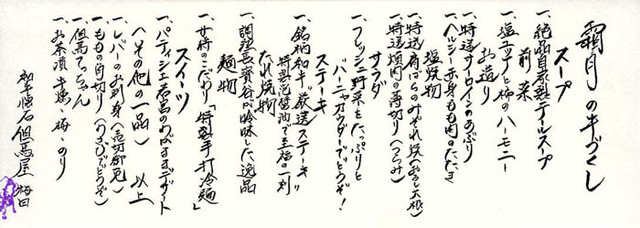 霜月の牛づくし
スープ
一、絶品自家製テールスープ
前菜
一、塩ユッケと柿のハーモニー
お造り
一、特選サーロインのあぶり
一、ヘルシー赤身もも肉のたたき
塩焼物
一、特選肩ばらのみぞれ焼(おろし大根)
一、特選頬肉の薄切り(つらみ)
サラダ
一、フレッシュ野菜をたっぷりと
バーニャカウダーでどうぞ!
ステーキ
一、銘柄和牛"厳選ステーキ"
特製 醤油で至福の一刻
たれ焼物
一、調理長 が吟味した逸品
麺物
一、女将のこだわり「特製手打冷麺」
スイーツ
一、パティシエ のわがままデザート
以上
〈その他の一品〉
一、レバーのお刺身
一、ももの角切り(わさびでどうぞ)
一、但馬てっちゃん
一、お茶漬 梅・のり
和牛懐石 但馬屋 梅田